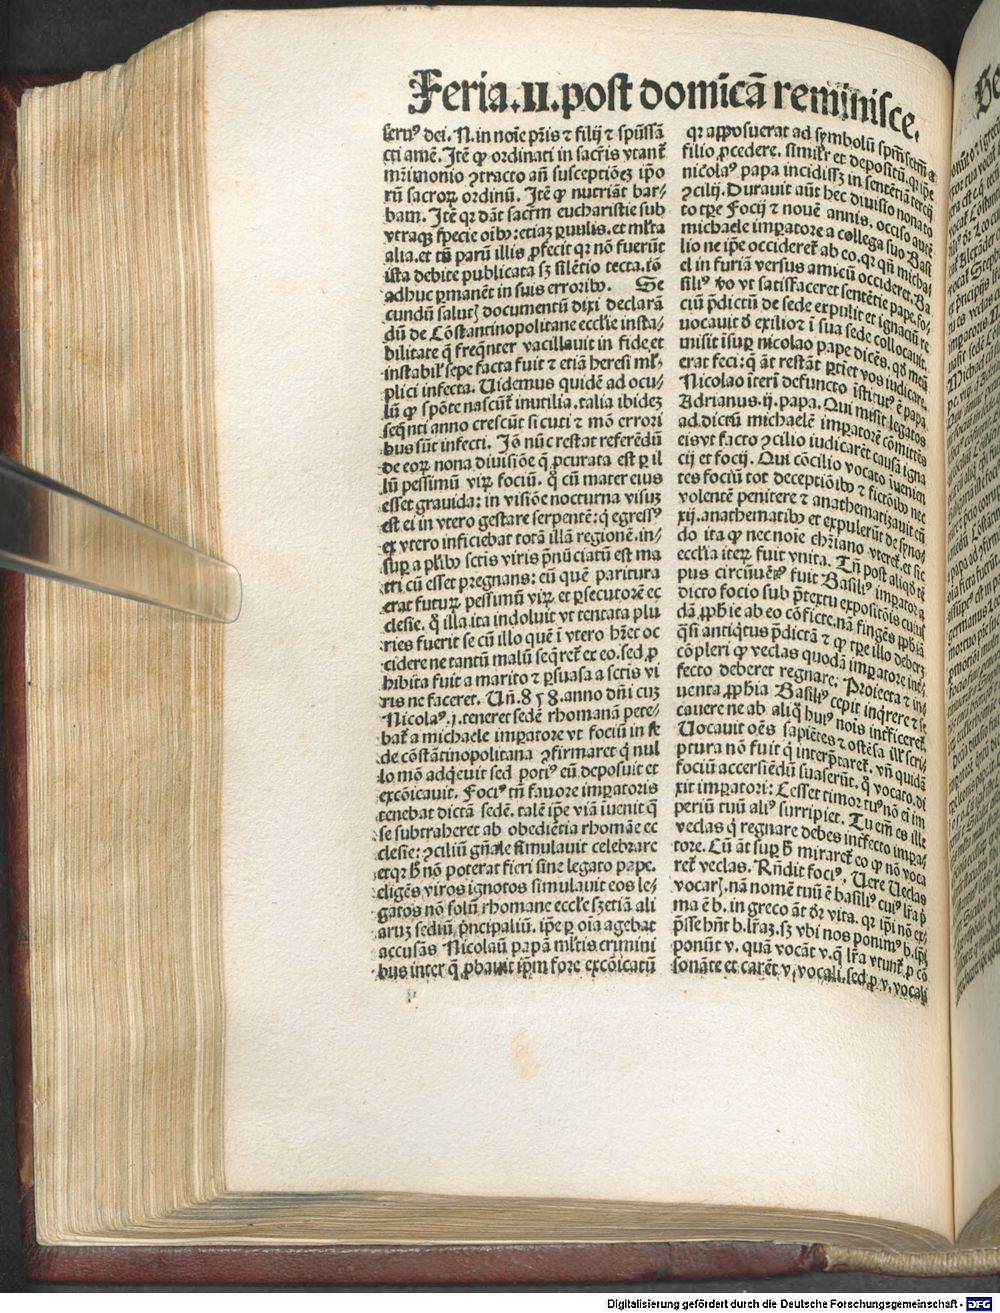 Feria.II.post domīcā reminisce.
seruꝰ dei. N. in noīe pr̄is ⁊ filij ⁊ spūssā
cti amē. Itē ꝙ ordinati in sacr̄is vtant᷑
mr̄imonio ꝯtracto añ susceptiōeꝫ ipo
rū sacroꝝ ordinū. Itē ꝙ nutriāt bar-
bam. Itē qꝛ dāt sacr̄m eucharistie sub
vtraqꝫ specie oībꝰ: etiaꝫ ꝑuulis. et ml̄ta
alia. et tn̄ parū illis ꝓfecit qꝛ nō fuerūt
ista debite publicata sꝫ silētio tecta. iō
adhuc ꝑmanēt in suis erroribꝰ. Se
cundū salutꝫ documentū dixi declarā
dū de Cōstantinopolitane eccl̄ie insta-
bilitate q̄ freqn̄ter vacillauit in fide et
instabil᷑ sepe facta fuit ⁊ etiā heresi ml̄-
plici infecta. Uidemus quidē ad ocu-
lū ꝙ spōte nascūt᷑ inutilia. talia ibideꝫ
seqn̄ti anno crescūt sicuti ⁊ mō errori
bus sūt infecti. Iō nūc restat referēdū
de eoꝝ nona diuisiōe q̄ ꝓcurata est ꝑ il
lū pessimū viꝝ fociū. q̄ cū mater eius
esset grauida: in visiōe nocturna visuꝫ
est ei in vtero gestare serpentē: q̄ egressꝰ
ex vtero inficiebat totā illā regionē. in-
suꝑ a pl̄ibꝰ sctis viris p̄nūciatū est ma
tri cū esset pregnans: eū quē paritura
erat futuꝝ pessimū viꝝ et ꝑsecutorē ec
clesie. q̄ illa ita indoluit vt tentata plu
ries fuerit se cū illo quē ī vtero hr̄et oc
cidere ne tantū malū seq̄ret᷑ ex eo. sed ꝓ
hibita fuit a marito ⁊ ꝑsuasa a sctis vi
ris ne faceret. Un̄. 858. anno dn̄i cuꝫ
Nicolaꝰ. j. teneret sedē rhomanā pete-
bat᷑ a michaele imꝑatore vt fociū in se
de cōstātinopolitana ꝯfirmaret q̄ nul
lo mō adq̄euit sed potiꝰ eū deposuit et
excōicauit. Fociꝰ tn̄ fauore imꝑatoris
tenebat dictā sedē. talē ip̄e viā īuenit q̄
se subtraheret ab obediētia rhomāe ec
clesie: ꝯciliū gn̄ale simulauit celebrare
et qꝛ h̄ nō poterat fieri sine legato pape.
eligēs viros ignotos simulauit eos le-
gatos nō solū rhomane eccl̄e sꝫ etiā ali
aruꝫ sediū p̄ncipaliū. ip̄e ꝑ oīa agebat
accusās Nicolaū papā ml̄tis crimini
bus inter q̄ ꝓbauit ip̄m fore excōicatū
qꝛ apposuerat ad symbolū spm̄sctm̄ a
filio ꝓcedere. simil᷑r et depositū. qꝛ ip̄e
nicolaꝰ papa incidissꝫ in sentētiā tercij
ꝯcilij. Durauit aūt hec diuisio nona to
to tꝑe Focij ⁊ nouē annis, occiso autē
michaele imꝑatore a collega suo Basi
lio ne ip̄e occideret᷑ ab eo. qꝛ qn̄ micha-
el in furiā versus amicū occideret. Ba
siliꝰ ꝟo vt satisfaceret sentētie pape. fo-
ciū p̄dictū de sede expulit et ignaciū re
uocauit d̄ exilio ⁊ ī sua sede collocauit.
misit īsuꝑ nicolao pape dicēs. qd̄ meū
erat feci: q̄ āt restāt ꝑtiēt vos iudicare.
Nicolao iterū defuncto īstitutꝰ ē papa
Adrianus. ij. papa. Qui misit legatos
ad dictū michaelē imꝑatorē cōmittēs
eis vt facto ꝯcilio iudicarēt causā igna
cij et focij. Qui cōcilio vocato īuenien
tes fociū tot deceptiōibꝰ ⁊ fictōibꝰ nec
volentē penitere ⁊ anathematizauit eū
xij. anathematibꝰ et expulerūt de syno-
do ita ꝙ nec noīe chr̄iano vteret᷑. et sic
eccl̄ia iteꝝ fuit vnita. Tn̄ post aliqd̄ tē
pus circūuētꝰ fuit Basiliꝰ imꝑator a
dicto focio sub p̄textu expositōis cuiusꝰ
dā ꝓph̄ie ab eo cōficte. nā fingēs ꝓph̄iā
q̄si antiq̄tus p̄dictā ⁊ ꝙ tꝑe illo deberꝫ
cōpleri ꝙ veclas quodā imꝑatore int̄-
fecto deberet regnare. Proiecta ⁊ in-
uenta ꝓph̄ia Basiliꝰ cepit inq̄rere ⁊ se
cauere ne ab aliq̄ huiꝰ nois int̄ficeret᷑.
Uocauit oēs sapiētes ⁊ ostēsa ill᷑ scri-
ptura nō fuit q̄ interp̄taret᷑. vn̄ quidā
fociū accersiēdū suaserūt. q̄ vocato. di
xit imꝑatori: Cesset timor tuꝰ nō ei im
periū tuū aliꝰ surripiet. Tu em̄ es ille
veclas q̄ regnare debes int̄fecto impa-
tore. Cū āt suꝑ h̄ miraret᷑ eo ꝙ nō voca
ret᷑ veclas. Rn̄dit fociꝰ. Uere Ueclas
vocarꝫ. nā nomē tuū ē basiliꝰ cuiꝰ lr̄a p̄
ma ē b. in greco āt dr̄ vita. qꝛ ip̄i nō ex-
p̄sse hn̄t b. lr̄aꝫ. sꝫ vbi nos ponimꝰ b. ip̄i
ponūt v. quā vocāt v. q̄ lr̄a vtunt᷑ ꝓ cō
sonāte et carēt v, vocali. sed ꝓ v, vocali
Digitalisierung gefördert durch die Deutsche Forschungsgemeinschaft - DFG